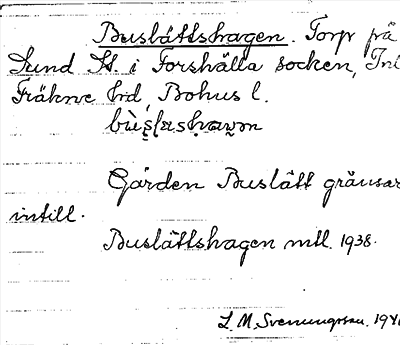 Buslättshagen. Torp på
Sund Ɫt i Forshälla socken, In
Fräkne hd, Bohus l.
Gården Buslätt gränsar
intill.
Buslättshagen mtl. 1938.
L. M. Svenungsson. 194